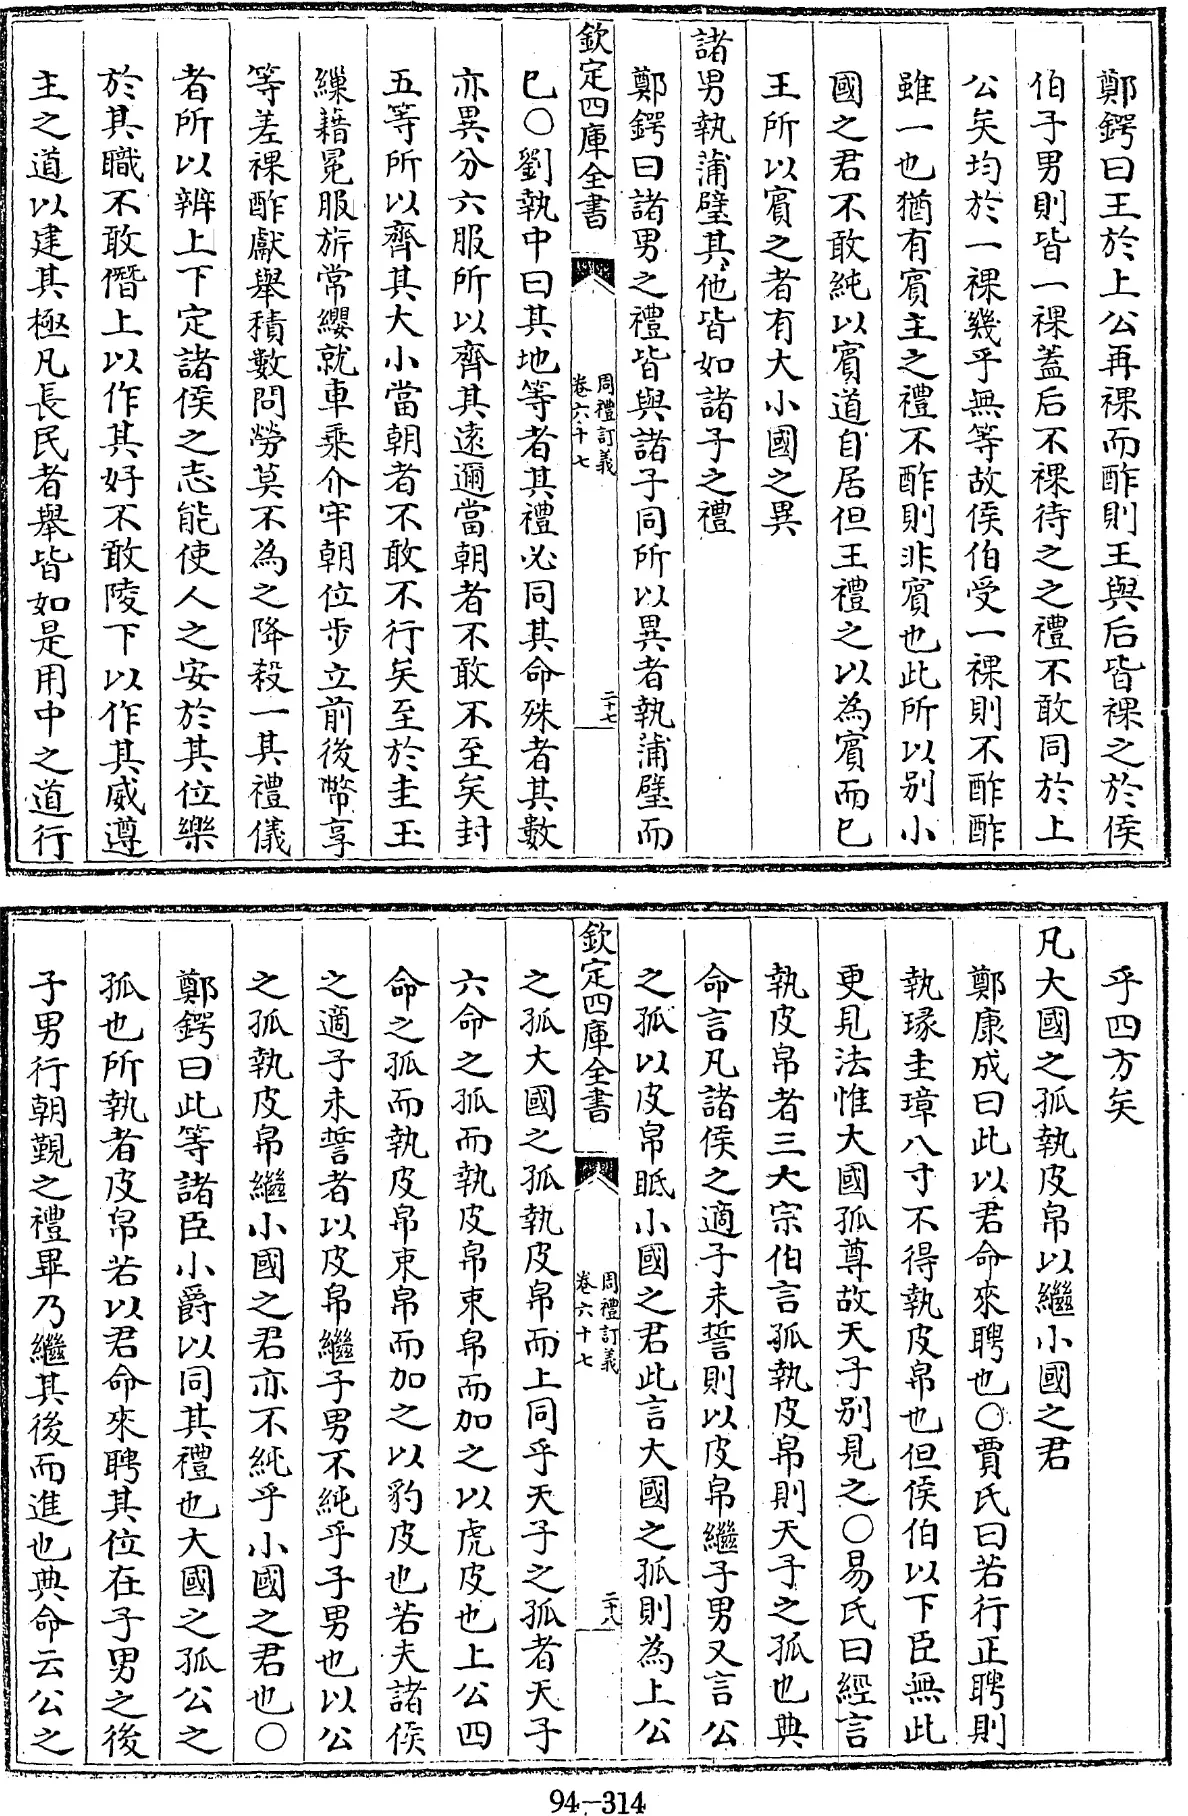 鄭鍔曰王於上公再祼而酢則王與后皆祼之於侯
伯子男則皆一祼蓋后不祼待之之禮不敢同於上
公矣均於一祼幾乎無等故侯伯受一祼則不酢酢
雖一也猶有賓主之禮不酢則非賓也此所以別小
國之君不敢純以賓道自居但王禮之以為賓而已
王所以賓之者有大小國之異
諸男執蒲璧其他皆如諸子之禮
鄭鍔曰諸男之禮皆與諸子同所以異者執蒲璧而
欽定四庫全書
周禮訂義
卷六十七
二十七
已○劉執中曰其地等者其禮必同其命殊者其數
亦異分六服所以齊其遠邇當朝者不敢不至矣封
五等所以齊其大小當朝者不敢不行矣至於圭玉
繅藉冕服旂常纓就車乘介牢朝位步立前後幣享
等差祼酢獻舉積數問勞莫不為之降殺一其禮儀
者所以辨上下定諸侯之志能使人之安於其位樂
於其職不敢僭上以作其好不敢陵下以作其威遵
主之道以建其極凡長民者舉皆如是用中之道行
乎四方矣
凡大國之孤執皮帛以繼小國之君
鄭康成曰此以君命來聘也○賈氏曰若行正聘則
執瑑圭璋八寸不得執皮帛也但侯伯以下臣無此
更見法惟大國孤尊故天子別見之○易氏曰經言
執皮帛者三大宗伯言孤執皮帛則天子之孤也典
命言凡諸侯之適子未誓則以皮帛繼子男又言公
之孤以皮帛眡小國之君此言大國之孤則為上公
欽定四庫全書
周禮訂義
卷六十七
二十八
之孤大國之孤執皮帛而上同乎天子之孤者天子
六命之孤而執皮帛束帛而加之以虎皮也上公四
命之孤而執皮帛束帛而加之以豹皮也若夫諸侯
之適子未誓者以皮帛繼子男不純乎子男也以公
之孤執皮帛繼小國之君亦不純乎小國之君也○
鄭鍔曰此等諸臣小爵以同其禮也大國之孤公之
孤也所執者皮帛若以君命來聘其位在子男之後
子男行朝覲之禮畢乃繼其後而進也典命云公之
94-314